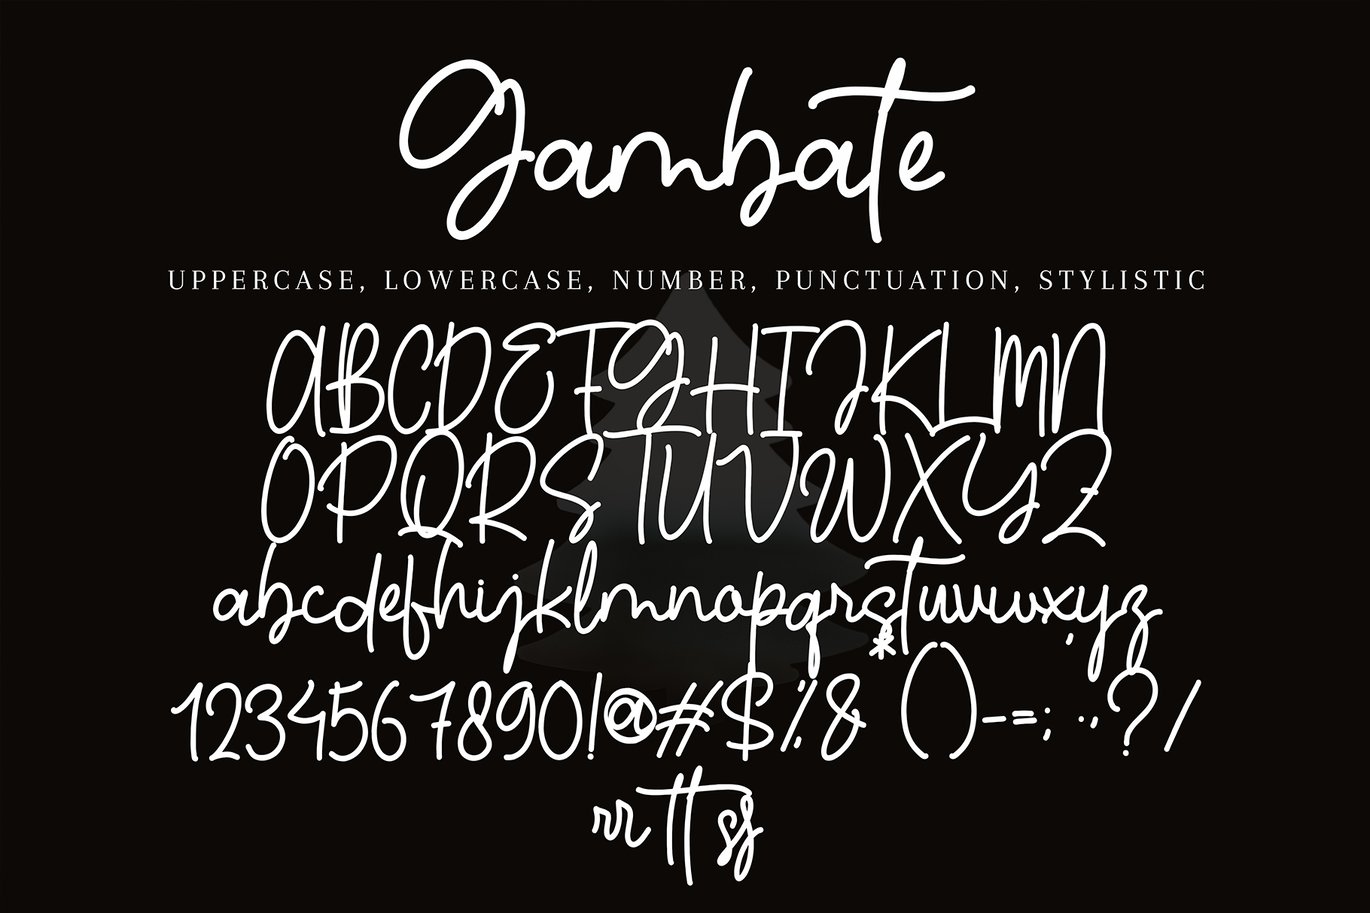 Gambate
UPPERCASE, LOWERCASE, NUMBER, PUNCTUATION, STYLISTIC
ABCDEFGHIJKLMN
OPQRSTUVWXYZ
abcdefhijklmnopqrstuvwxyz
1234567890!@#$%&*()--=:;..,'?/
rr tt ss